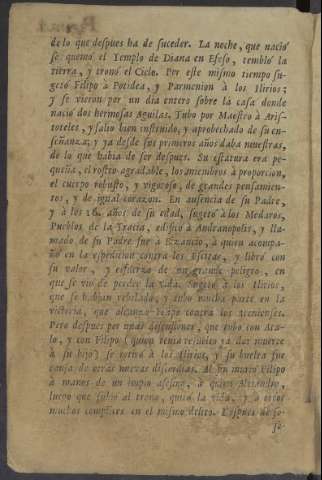 de lo que despues ha de suceder. La noche, que naciò
se quemò el Templo de Diana en Efeso, temblò la
tierra, y tronò el Cielo. Por este mismo tiempo su-
getò Filipo à Potidea, y Parmenion à los Ilirios;
y se vieron por un dia entero sobre la casa donde
naciò dos hermosas Aguilas. Tubo por Maestro à Aris-
toteles, y saliò bien instruido, y aprobechado de su en-
señanza; y ya desde sus primeros años daba muestras,
de lo que habia de ser despues. Su estatura era pe-
queña, el rostro agradable, los miembros à proporcion,
el cuerpo robusto, y vigoroso, de grandes pensamien-
tos, y de igual corazon. En ausencia de su Padre,
y à los 16. años de su edad, sugetò à los Medaros,
Pueblos de la Tracia, edificò à Andranopolis, y lla-
mado de su Padre fue à Bizancio, à quien acompa-
ñò en la espedicion contra los Escitas, y librò con
su valor, y esfuerzo de un grande peligro, en
que se viò de perder la vida. Sugetò à los Ilirios,
que se habian rebelado, y tubo mucha parte en la
victoria, que alcanzò Filipo contra los Atenienses.
Pero despues por unas disensiones, que tubo con Ata-
lo, y con Filipo (quien tenia resuelto ya dar muerte
à su hijo) se retirò à los Ilirios, y su buelta fue
causa de otras nuevas discordias. Al fin muriò Filipo
à manos de un impio asesino, à quien Alexandro,
luego que subiò al trono, quitò la vida, y à otros
muchos complices en el mismo delito. Despues de so-